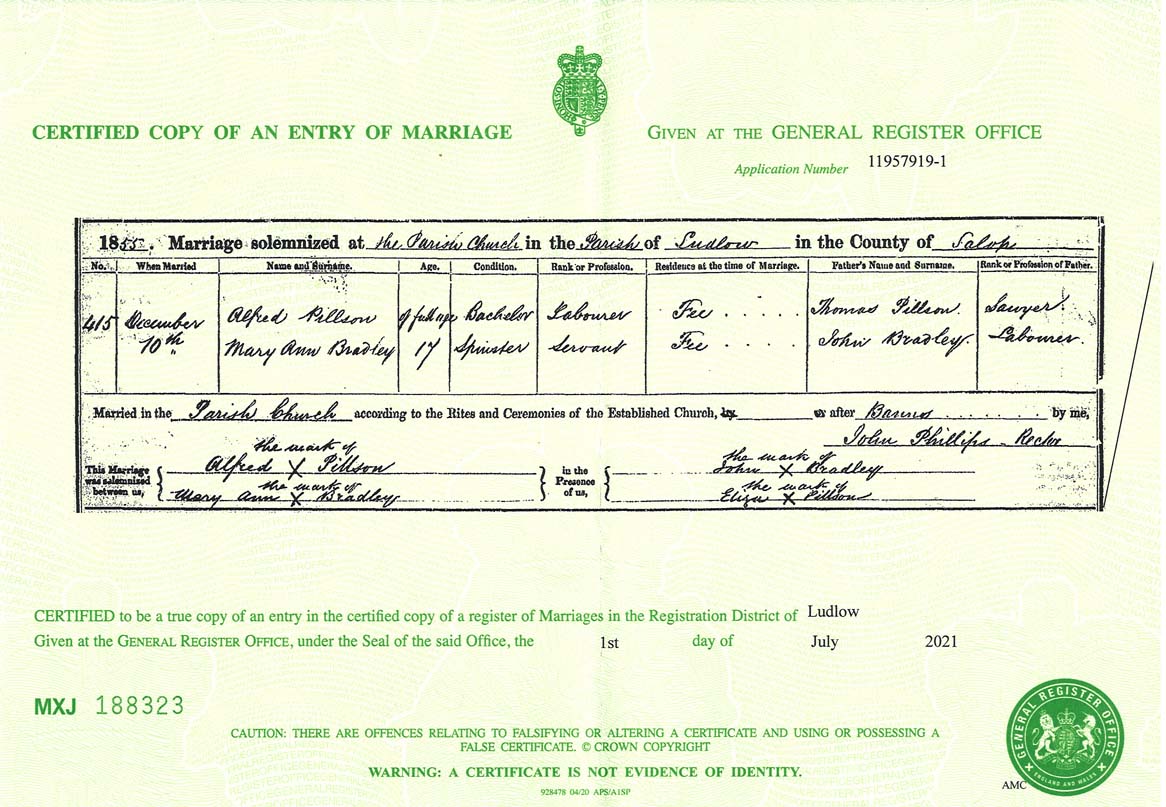 CERTIFIED COPY OF AN ENTRY OF MARRIAGE
GIVEN AT THE GENERAL REGISTER OFFICE
Application Number 11957919-1
1855. Marriage solemnized at the Parish Church in the Parish of Ludlow in the County of Salop
No. When Married Name and Surname. Age. Condition. Rank or Profession. Residence at the time of Marriage. Father's Name and Surname. Rank or Profession of Father.
415 December Alfred Pillson of full age Bachelor Labourer Fee . . . . . Thomas Pillson. Sawyer.
10th Mary Ann Bradley 17 Spinster Servant Fee . . . . John Bradley. Labourer.
Married in the Parish Church according to the Rites and Ceremonies of the Established Church, by or after Banns . . . . . . . . by me,
John Phillips Rector
This Marriage was solemnized between us,
the mark of
Alfred X Pillson
the mark of
Mary Ann X Bradley
in the Presence of us,
the mark of
John X Bradley
the mark of
Eliza X Pillson
CERTIFIED to be a true copy of an entry in the certified copy of a register of Marriages in the Registration District of Ludlow
Given at the GENERAL REGISTER OFFICE, under the Seal of the said Office, the 1st day of July 2021
MXJ 188323
CAUTION: THERE ARE OFFENCES RELATING TO FALSIFYING OR ALTERING A CERTIFICATE AND USING OR POSSESSING A
FALSE CERTIFICATE. © CROWN COPYRIGHT
WARNING: A CERTIFICATE IS NOT EVIDENCE OF IDENTITY.
928478 04/20 APS/A1SP
GENERAL REGISTER OFFICE
ENGLAND AND WALES
AMC